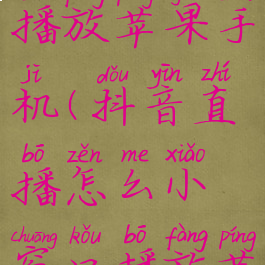 播放苹果手
jī dǒu yīn zhí
机(抖音直
bō zěn me xiǎo
播怎么小
chuāng kǒu bō fàng píng
窗口播放苹